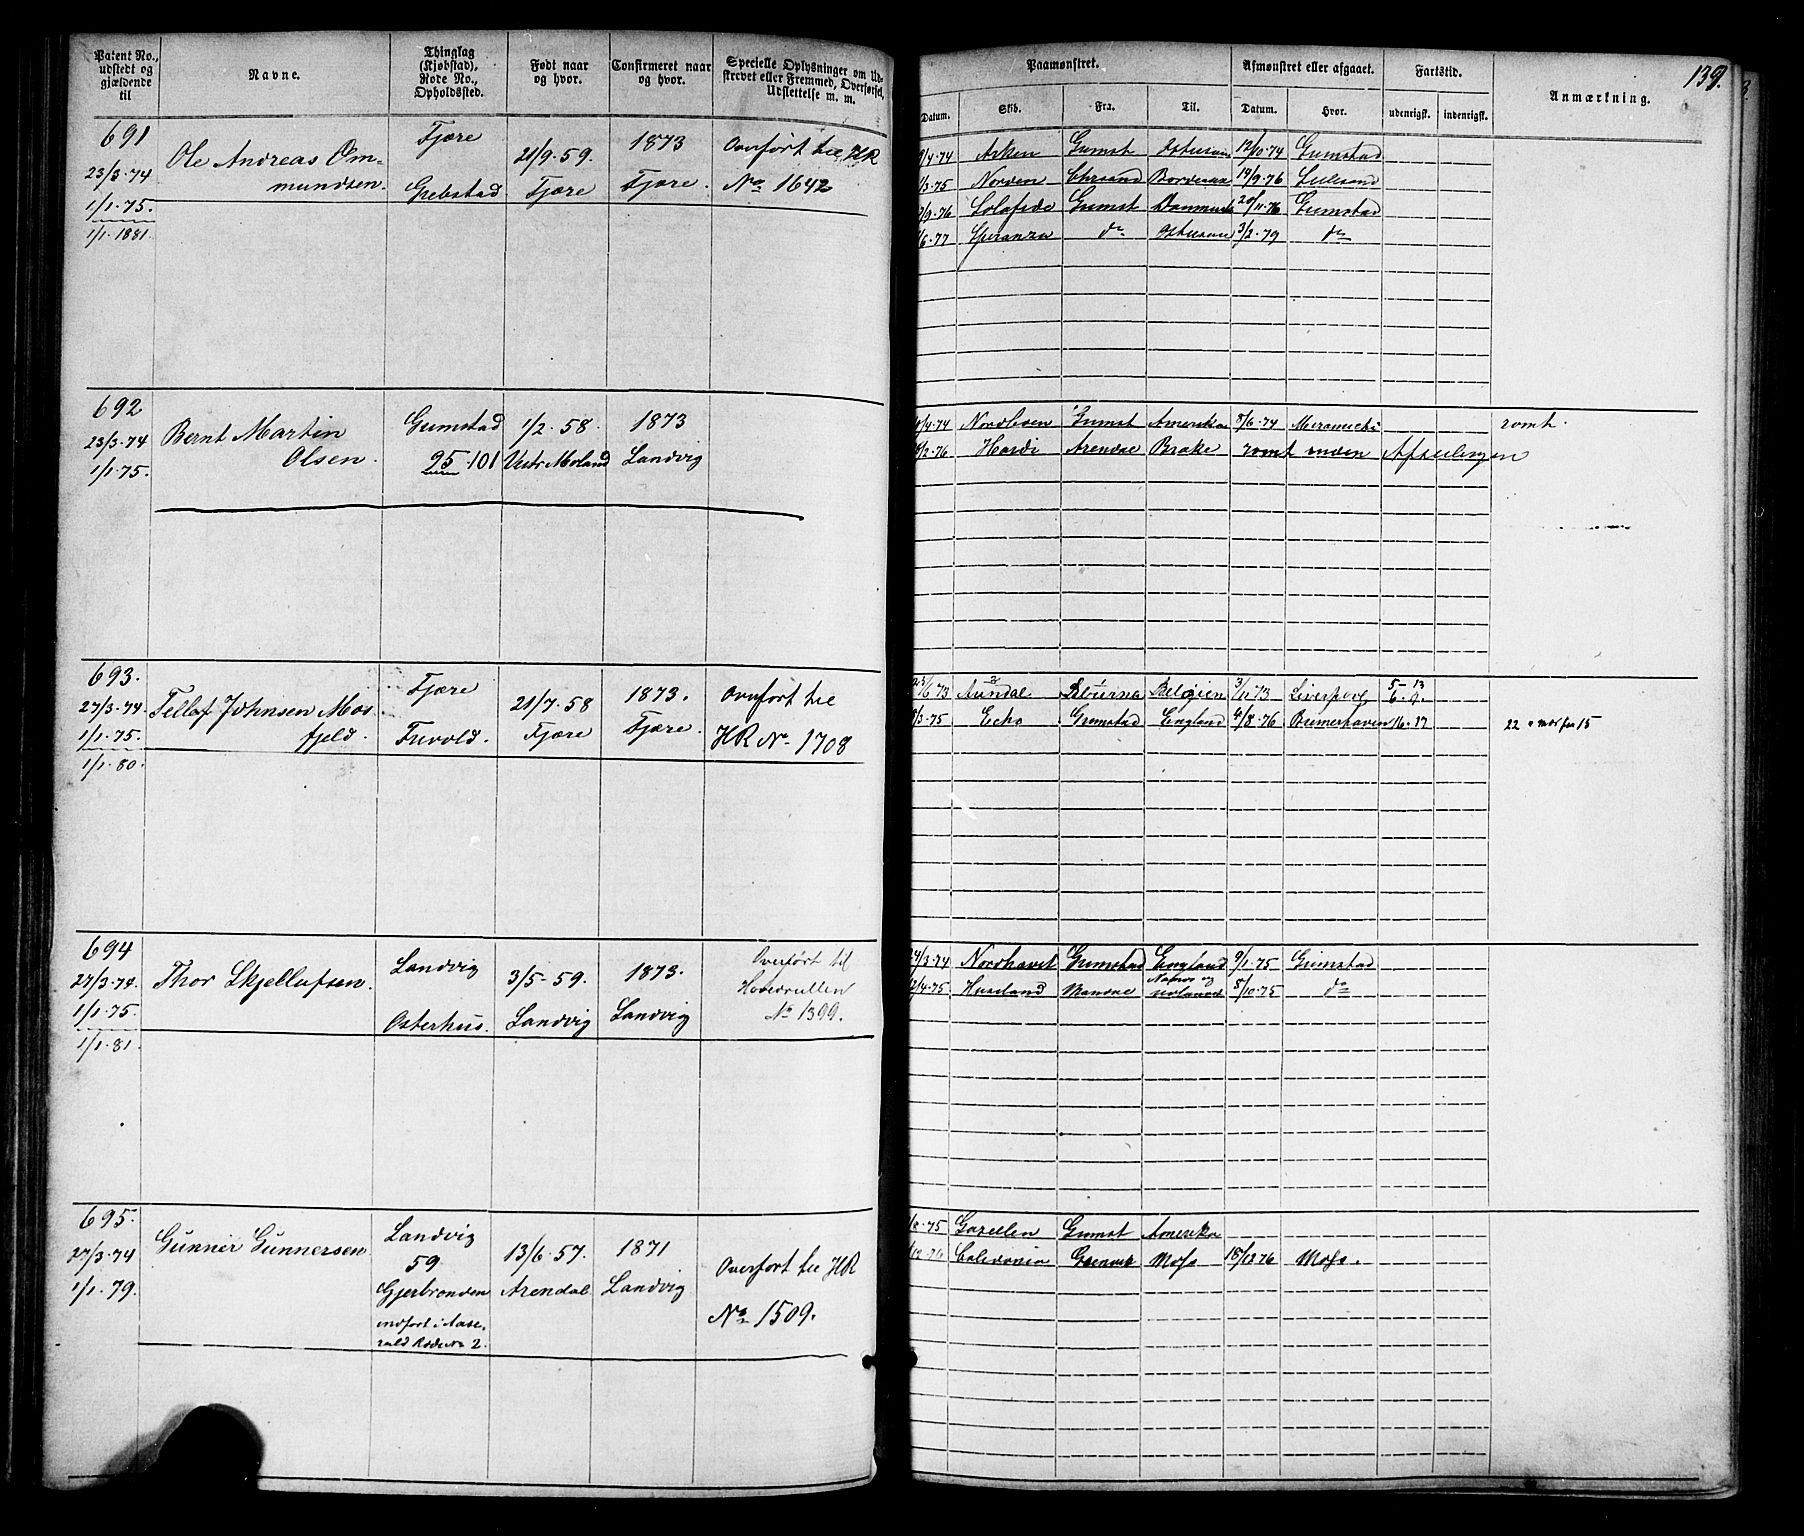 Patent No., udstedt og gjældende til
Navne.
Thinglag (Kjøbstad), Rode No., Opholdssted.
Født naar og hvor.
Confirmeret naar og hvor.
Specielle Oplysninger om Udskrevet eller Fremmed, Overførsel, Udslettelse m. m.
691
23/3-74
1/1-75.
1/1-1881.
Ole Andreas Om-
mundsen.
Fjære
Grebstad
21/9-59.
Fjære
1873
Fjære.
Overført til HR
No 1642
692
23/3-74
1/1-75.
Bernt Martin
Olsen.
Grimstad
25-101
1/2-58.
Vestre Moland
1873
Landvig
693.
27/3-74
1/1-75.
1/1-80.
Tellef Johnsen Mos
fjeld.
Fjære
Fuvold.
21/7-58
Fjære
1873.
Fjære.
Overført til
HR No 1708
694
27/3-74.
1/1-75.
1/1-81.
Thor Skjellufsen.
Landvig
Osterhus.
3/5-59.
Landvig
1873.
Landvig
Overført til
Hovedrullen
No 1399.
695.
27/3-74
1/1-79.
Gunner Gunnersen
Landvig
59
Gjerbronden
indført i Aase-
rald Rode No 2.
13/6-57.
Arendal
1871
Landvig
Overført til HR
No 1509.
139.
Paamønstret.
Afmønstret eller afgaaet.
Fartstid.
Anmærkning.
Datum.
Skib.
Fra.
Til.
Datum.
Hvor.
udenrigsk.
indenrigsk.
/4-74 Arken Grimst Østersøen 12/10-74 Grimstad
/3-75 Norden Chrsand Bordeaux 14/9-76 Lillesand
/9-76 Grimst Danmark 20/11-76 Grimstad
/6-77 Speranza do Østersøen 3/2-79 do
/4-74 Grimst Amerika 5/6-74 Miramichi romt.
/2-76 Hardi Arendal Brake romt inden Afseilingen
/6-73 Belgien 3/11-73 Liverpool
/3-75 Echo Grimstad England 4/8-76 Bremerhaven 16-17
/3-74 Nordhavet Grimstad England 9/1-75 Grimstad
/4-75 Mandal 5/10-75 do
-75 Gazellen Grimst Amerika
Caledonia Moss 18/12 76 Moss.